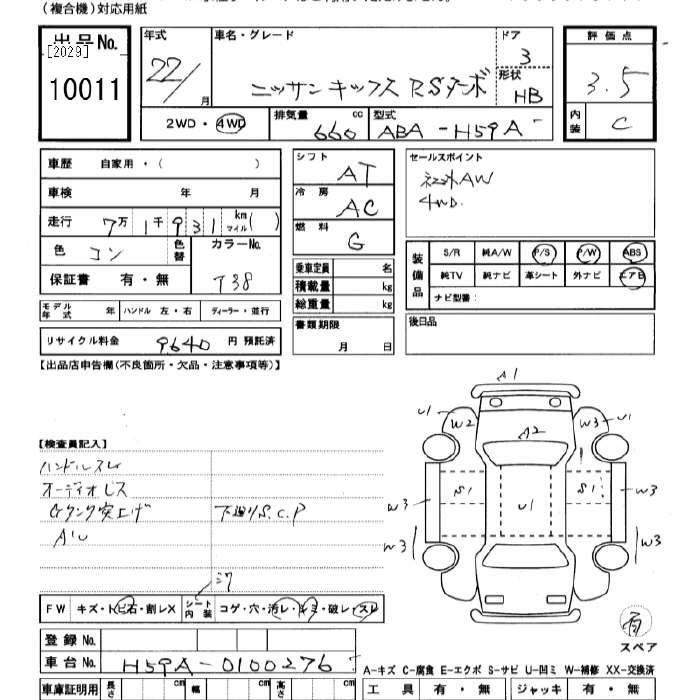 (複合機)対応用紙
出品No.
[2029]
10011
年式
22/
月
車名・グレード
ニッサンキックス RSターボ
ドア
3
形状
HB
評価点
3.5
内装
C
2WD・4WD
排気量
660
cc
型式
ABA-H59A
車歴 自家用・( )
車検 年 月
走行 7万1千931 km マイル( )
色
コン
色替
カラーNo.
T38
保証書 有・無
シフト
AT
冷房
AC
燃料
G
乗車定員 名
積載量 kg
総重量 kg
セールスポイント
社外AW
4WD.
装備品
S/R 純A/W P/S P/W ABS
純TV 純ナビ 革シート 外ナビ エアB
ナビ型番:
モデル年式 年 ハンドル 左・右 ディーラー・並行
書類期限
月 日
後日品
リサイクル料金 9640 円 預託済
【出品店申告欄(不良箇所・欠品・注意事項等)】
A1
U1 W2 A2 W3 U1
W3 S1 U1 S1 W3
W3 W3
【検査員記入】
ハンドルスレ
オーディオレス
Gタンク突上げ
下廻りS.C.P
FW キズ・トビ石・割レX
シート内装 コゲ・穴・汚レ・シミ・破レ・スレ
登録No.
車台No. H59A-0100276
有
スペア
A-キズ C-腐食 E-エクボ S-サビ U-凹ミ W-補修 XX-交換済
車庫証明用 長さ cm 幅 cm 高さ cm
工具 有・無 ジャッキ 有・無